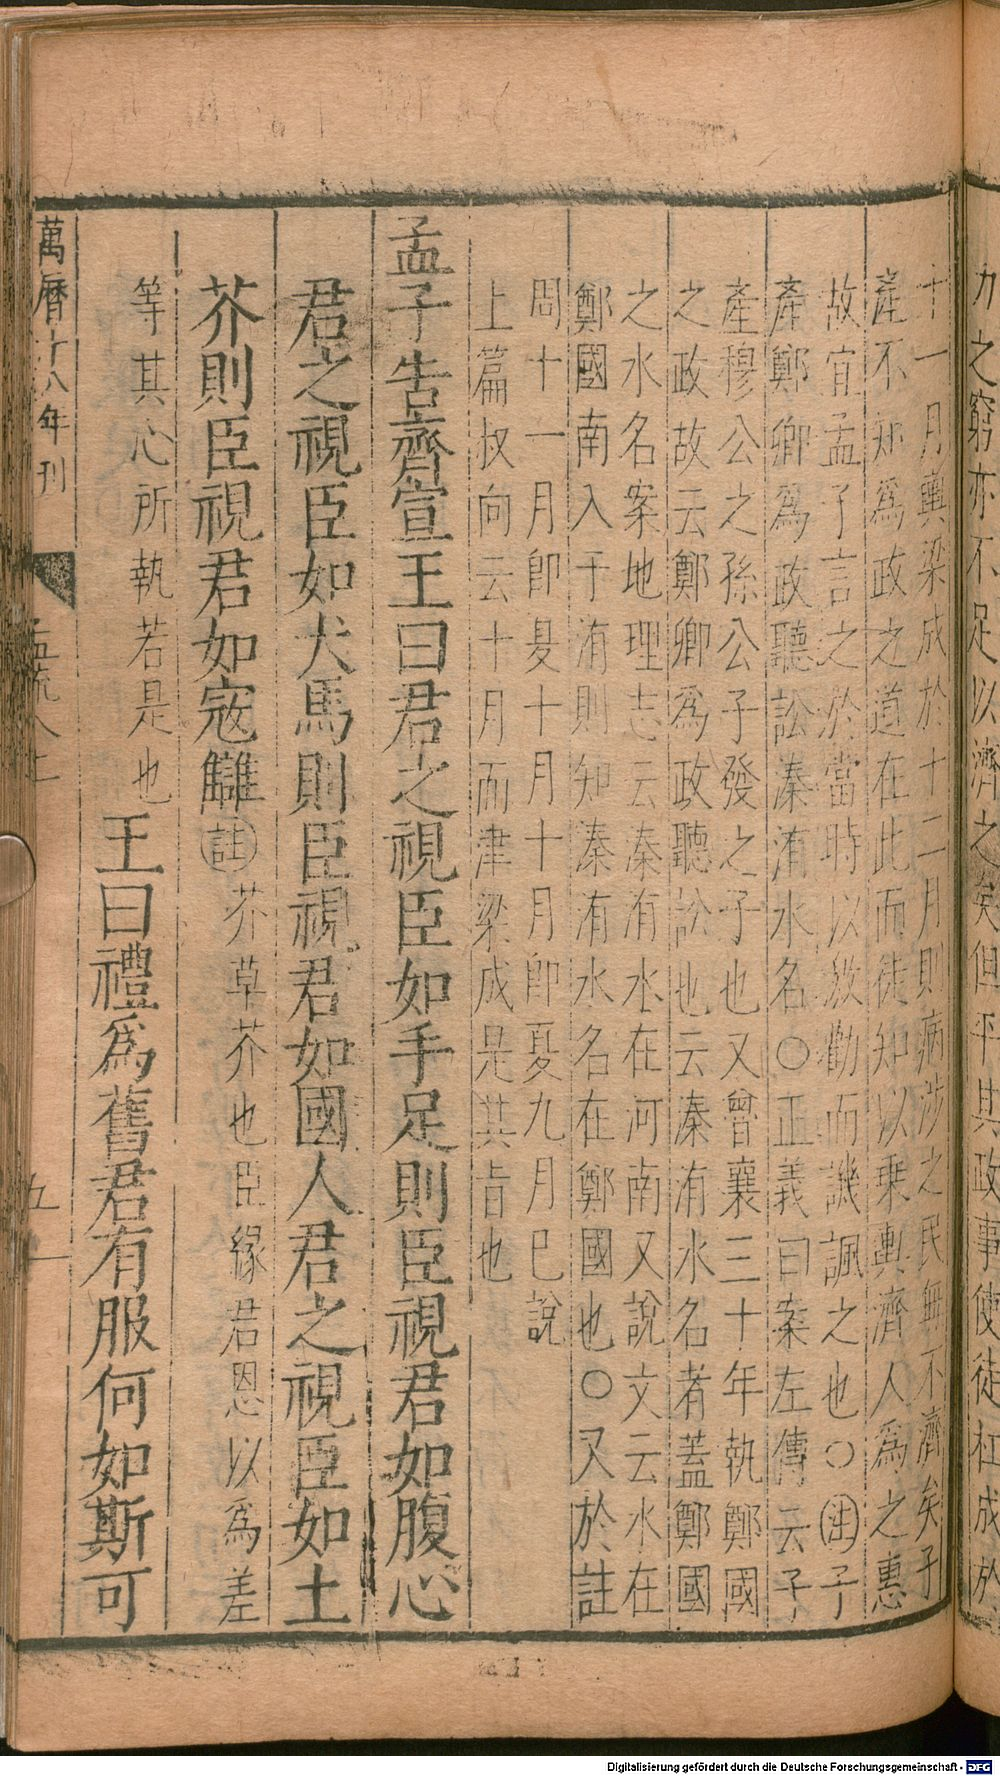 力之窮亦不足以濟之矣但平其政事使徒杠成於
十一月輿梁成於十二月則病涉之民無不濟矣子
產不知爲政之道在此而徒知以乗輿濟人爲之惠
故宜孟子言之於當時以救勸而譏諷之也○註子
產鄭卿爲政聽訟溱洧水名○正義曰案左傳云子
產穆公之孫公子發之子也又曾襄三十年執鄭國
之政故云鄭卿爲政聽訟也云溱洧水名者蓋鄭國
之水名案地理志云溱洧水在河南又說文云水在
鄭國南入于洧則知溱洧水名在鄭國也○又於註
周十一月即夏十月十月即夏九月已說
上篇叔向云十月而津梁成是其旨也
孟子告齊宣王曰君之視臣如手足則臣視君如腹心
君之視臣如犬馬則臣視君如國人君之視臣如土
芥則臣視君如寇讎註芥草芥也臣緣君恩以爲差
等其心所執若是也王曰禮爲舊君有服何如斯可
萬曆十八年刊
孟疏八上
五
Digitalisierung gefördert durch die Deutsche Forschungsgemeinschaft - DFG